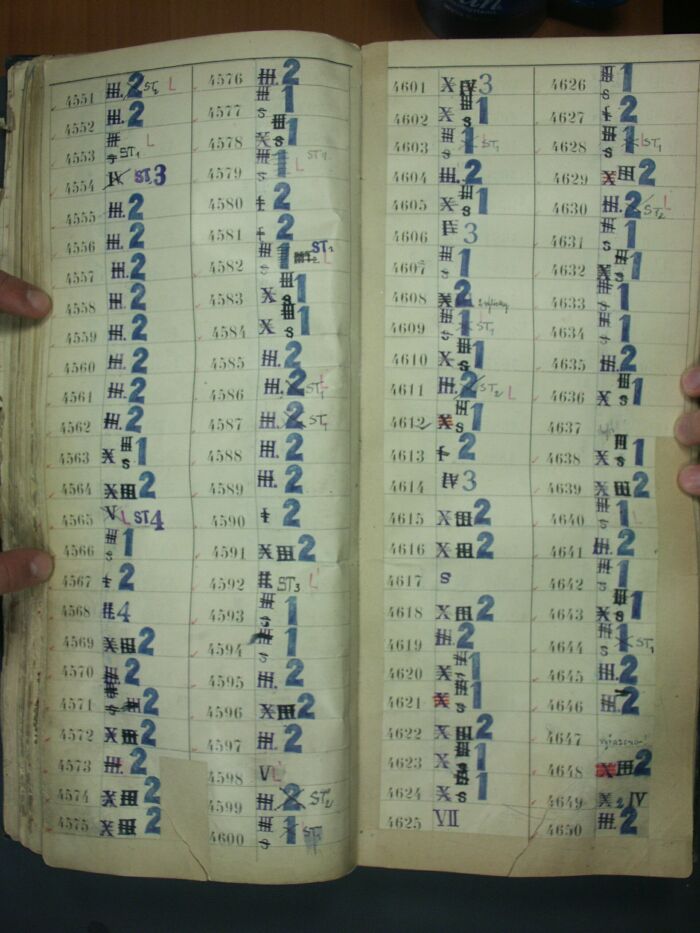 4551 III. 2 ST2 L
4552 III. 2
4553 III s ST1 L
4554 IV ST 3
4555 III. 2
4556 III. 2
4557 III. 2
4558 III. 2
4559 III. 2
4560 III. 2
4561 III. 2
4562 III. 2
4563 X III s 1
4564 X III 2
4565 V L ST 4
4566 III s 1
4567 2
4568 II 4
4569 X III 2
4570 III. 2
4571 III s III 2
4572 X III 2
4573 III. 2
4574 X III 2
4575 X III 2
4576 III. 2
4577 III s 1
4578 X III s 1
4579 III s 1 L ST1
4580 2
4581 2
4582 III s 1 ST2 L
4583 X III s 1
4584 X III s 1
4585 III. 2
4586 III. 2 ST1 L
4587 III. 2 ST1
4588 III. 2
4589 III. 2
4590 2
4591 X III 2
4592 II. ST3 L
4593 III s 1
4594 III s 1
4595 III. 2
4596 X III 2
4597 III. 2
4598 VI L
4599 III. 2 ST2
4600 III s 1
4601 X IV 3
4602 X III s 1
4603 III s 1 ST1
4604 III. 2
4605 X III s 1
4606 IV 3
4607 III s 1
4608 X 2
4609 III s 1 ST1
4610 X III s 1
4611 III. 2 ST2 L
4612 X III s 1
4613 2
4614 IV 3
4615 X III 2
4616 X III 2
4617 s
4618 X III 2
4619 III. 2
4620 X III s 1
4621 X III s 1
4622 X III 2
4623 X III s 1
4624 X III s 1
4625 VII
4626 III s 1
4627 2
4628 III s 1 ST1
4629 X III 2
4630 III. 2 ST2 L
4631 III s 1
4632 X III s 1
4633 III s 1
4634 III s 1
4635 III. 2
4636 X III s 1
4637
4638 X III s 1
4639 X III 2
4640 III s 1 L
4641 III. 2
4642 III s 1
4643 X III s 1
4644 III s 1 ST1
4645 III. 2
4646 III. 2
4647
4648 X III 2
4649 X 2 IV
4650 III. 2